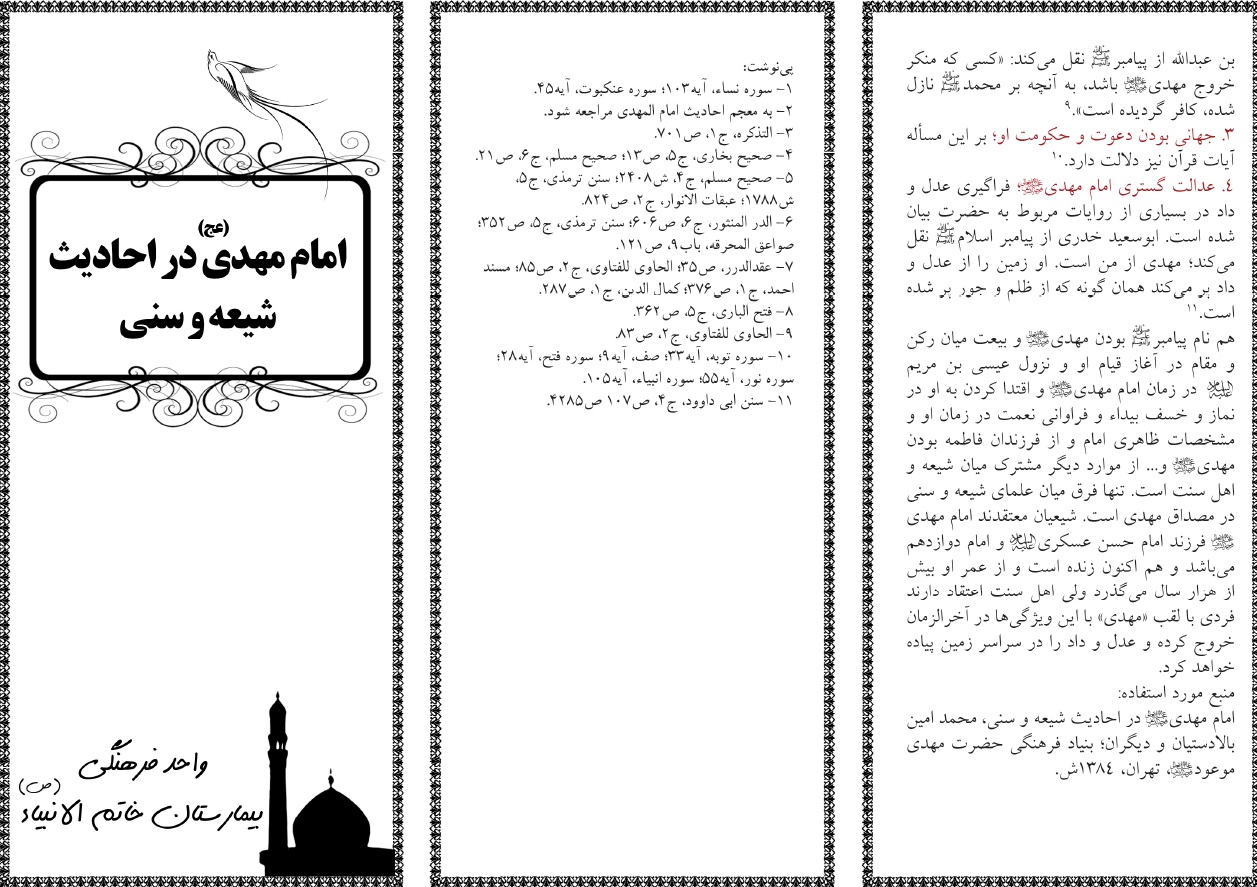 بن عبدالله از پیامبرﷺ نقل می‌کند: «کسی که منکر
خروج مهدی باشد، به آنچه بر محمدﷺ نازل
شده، کافر گردیده است».۹
۳. جهانی بودن دعوت و حکومت او؛ بر این مسأله
آیات قرآن نیز دلالت دارد.۱۰
۴. عدالت گستری امام مهدی؛ فراگیری عدل و
داد در بسیاری از روایات مربوط به حضرت بیان
شده است. ابوسعید خدری از پیامبر اسلامﷺ نقل
می‌کند؛ مهدی از من است. او زمین را از عدل و
داد پر می‌کند همان گونه که از ظلم و جور پر شده
است.۱۱
هم نام پیامبرﷺ بودن مهدی و بیعت میان رکن
و مقام در آغاز قیام او و نزول عیسی بن مریم
در زمان امام مهدی و اقتدا کردن به او در
نماز و خسف بیداء و فراوانی نعمت در زمان او و
مشخصات ظاهری امام و از فرزندان فاطمه بودن
مهدی و... از موارد دیگر مشترک میان شیعه و
اهل سنت است. تنها فرق میان علمای شیعه و سنی
در مصداق مهدی است. شیعیان معتقدند امام مهدی
فرزند امام حسن عسکری و امام دوازدهم
می‌باشد و هم اکنون زنده است و از عمر او بیش
از هزار سال می‌گذرد ولی اهل سنت اعتقاد دارند
فردی با لقب «مهدی» با این ویژگی‌ها در آخرالزمان
خروج کرده و عدل و داد را در سراسر زمین پیاده
خواهد کرد.
منبع مورد استفاده:
امام مهدی در احادیث شیعه و سنی، محمد امین
بالادستیان و دیگران؛ بنیاد فرهنگی حضرت مهدی
موعود، تهران، ۱۳۸۴ش.
پی‌نوشت:
۱- سوره نساء، آیه۱۰۳؛ سوره عنکبوت، آیه۴۵.
۲- به معجم احادیث امام المهدی مراجعه شود.
۳- التذکره، ج۱، ص۷۰۱.
۴- صحیح بخاری، ج۵، ص۱۳؛ صحیح مسلم، ج۶، ص۲۱.
۵- صحیح مسلم، ج۴، ش۲۴۰۸؛ سنن ترمذی، ج۵،
ش۱۷۸۸؛ عبقات الانوار، ج۲، ص۸۲۴.
۶- الدر المنثور، ج۶، ص۶۰۶؛ سنن ترمذی، ج۵، ص۳۵۲؛
صواعق المحرقه، باب۹، ص۱۲۱.
۷- عقدالدرر، ص۳۵؛ الحاوی للفتاوی، ج۲، ص۸۵؛ مسند
احمد، ج۱، ص۳۷۶؛ کمال الدین، ج۱، ص۲۸۷.
۸- فتح الباری، ج۵، ص۳۶۲.
۹- الحاوی للفتاوی، ج۲، ص۸۳.
۱۰- سوره توبه، آیه۳۳؛ صف، آیه۹؛ سوره فتح، آیه۲۸؛
سوره نور، آیه۵۵؛ سوره انبیاء، آیه۱۰۵.
۱۱- سنن ابی داوود، ج۴، ص۱۰۷ ص۴۲۸۵.
(عج)
امام مهدی در احادیث
شیعه و سنی
واحد فرهنگی
(ص)
بیمارستان خاتم الانبیاء